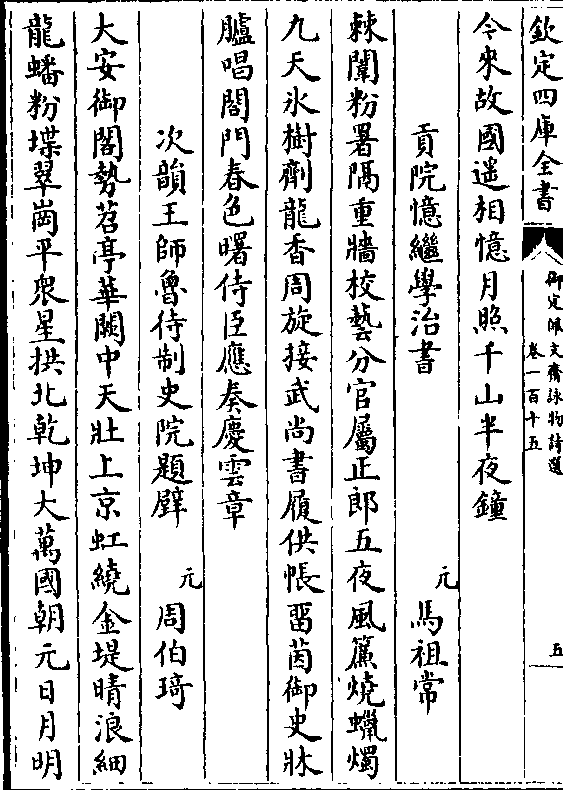 欽定四庫全書
御定佩文齋詠物詩選
卷一百十五
五
令來故國遥相憶月照千山半夜鐘
貢院憶繼學治書
元
馬祖常
棘闈粉署隔重牆校藝分官屬正郎五夜風簾燒蠟燭
九天氷樹劑龍香周旋接武尚書履供帳畱茵御史牀
臚唱閤門春色曙侍臣應奏慶雲章
次韻王師魯待制史院題壁
元
周伯琦
大安御閣勢苕亭華闕中天壯上京虹繞金堤晴浪細
龍蟠粉堞翠崗平衆星拱北乾坤大萬國朝元日月明